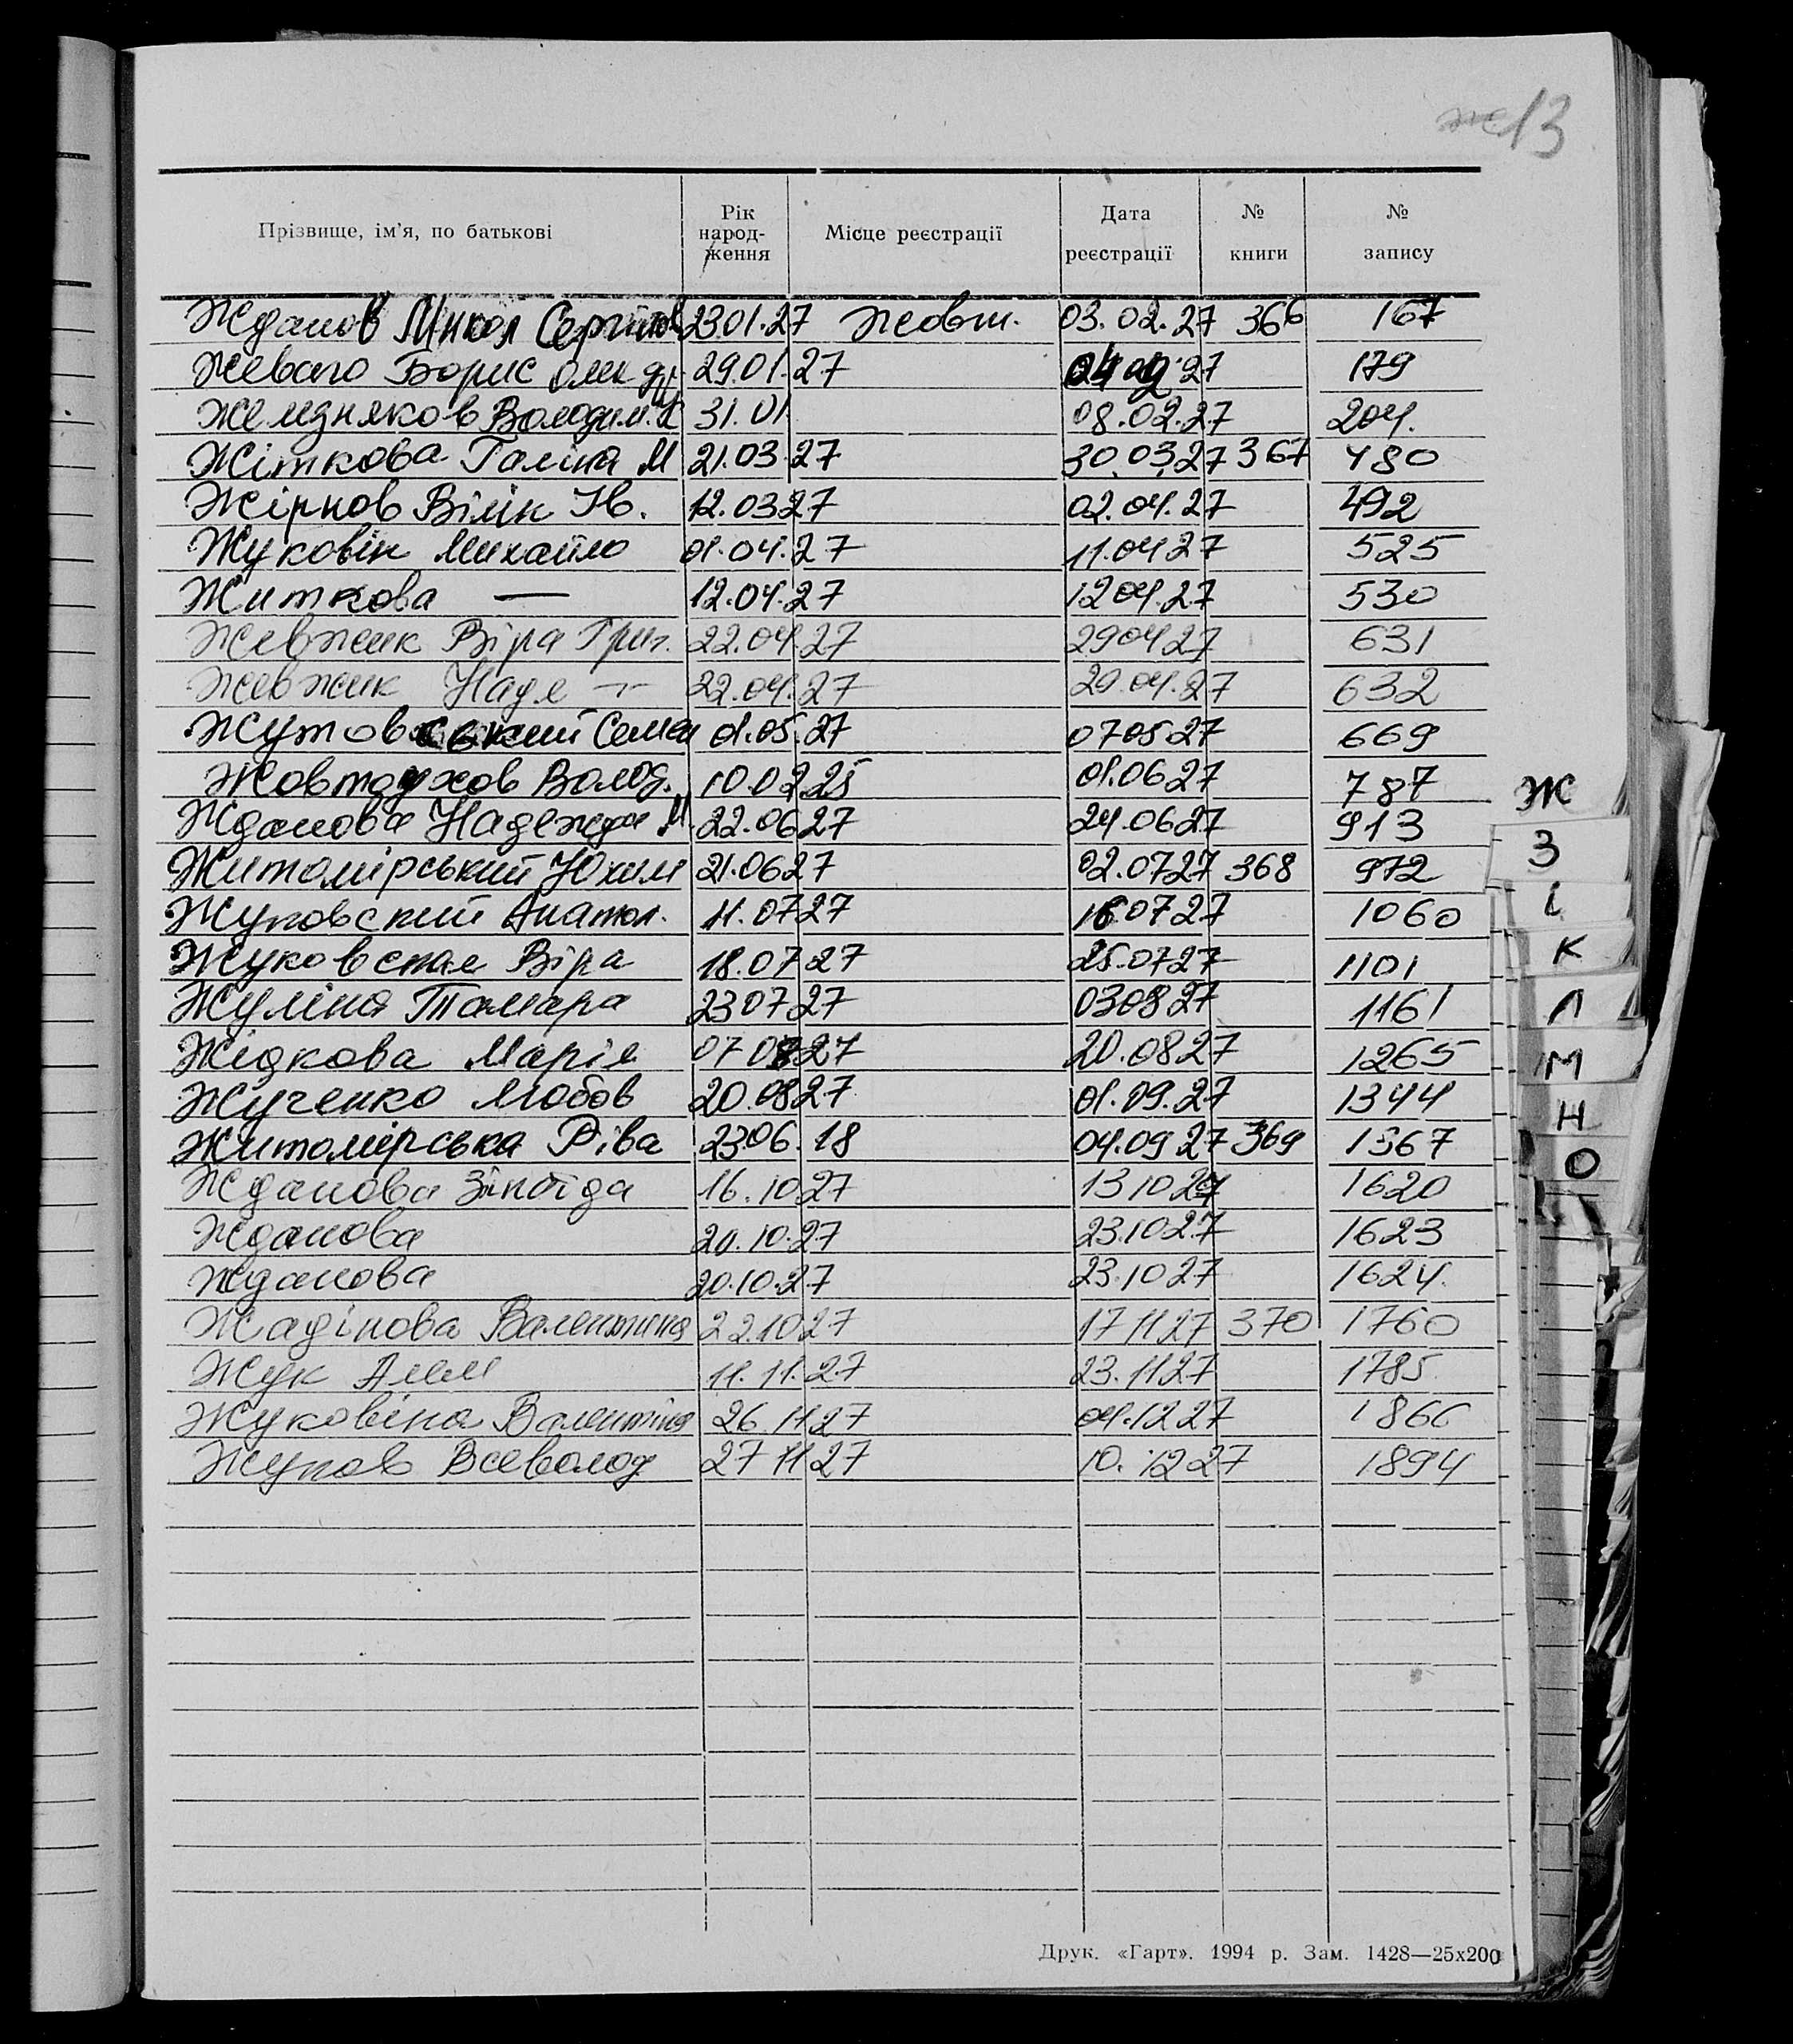 13
Прізвище, ім'я, по батькові Рік народження Місце реєстрації Дата реєстрації № книги № запису
Жданов Микол 23.01.27 Жовт. 03.02.27 366 167
Жеваго Борис 29.01.27 04 02 27 179
Желєзняков Володим. 31.01 08.02.27 204.
Жіткова Галина М 21.03.27 30.03.27 367 480
Жірнов Вілін Ів. 12.03 27 02.04.27 492
Жуковін Михайло 01.04.27 11.04 27 525
Житкова — 12.04.27 12 04.27 530
Жевжик Віра Григ. 22.04.27 29 04 27 631
Жевжик Надя —"— 22.04.27 29.04.27 632
Семен 01.05.27 07 05 27 669
Жовтоухов Волод. 10.02.25 01.06 27 787
Жданова Надежда М. 22.06 27 24.06 27 913
Житомірський Юхим 21.06 27 02.07 27 368 972
Жуковский Анатол. 11.07 27 16 07 27 1060
Жуковская Віра 18.07 27 25.07 27 1101
Жуліна Тамара 23 07 27 03 08 27 1161
Жідкова Марія 07 08 27 20.08 27 1265
Жученко Любов 20.08 27 01.09.27 1344
Житомірська Ріва 23.06.18 04.09 27 369 1367
Жданова Зінаїда 16.10 27 13 10 27 1620
Жданова 20.10.27 23.10 27 1623
Жданова 20.10.27 23.10 27 1624.
Жадінова Валентина 22.10 27 17 11 27 370 1760
Жук 11.11.27 23.11 27 1785
Жуковіна Валентина 26.11 27 04.12 27 1866
Жуков Всеволод 27 11 27 10.12 27 1894
Ж
З
І
К
Л
М
Н
О
Друк. «Гарт». 1994 р. Зам. 1428—25х200